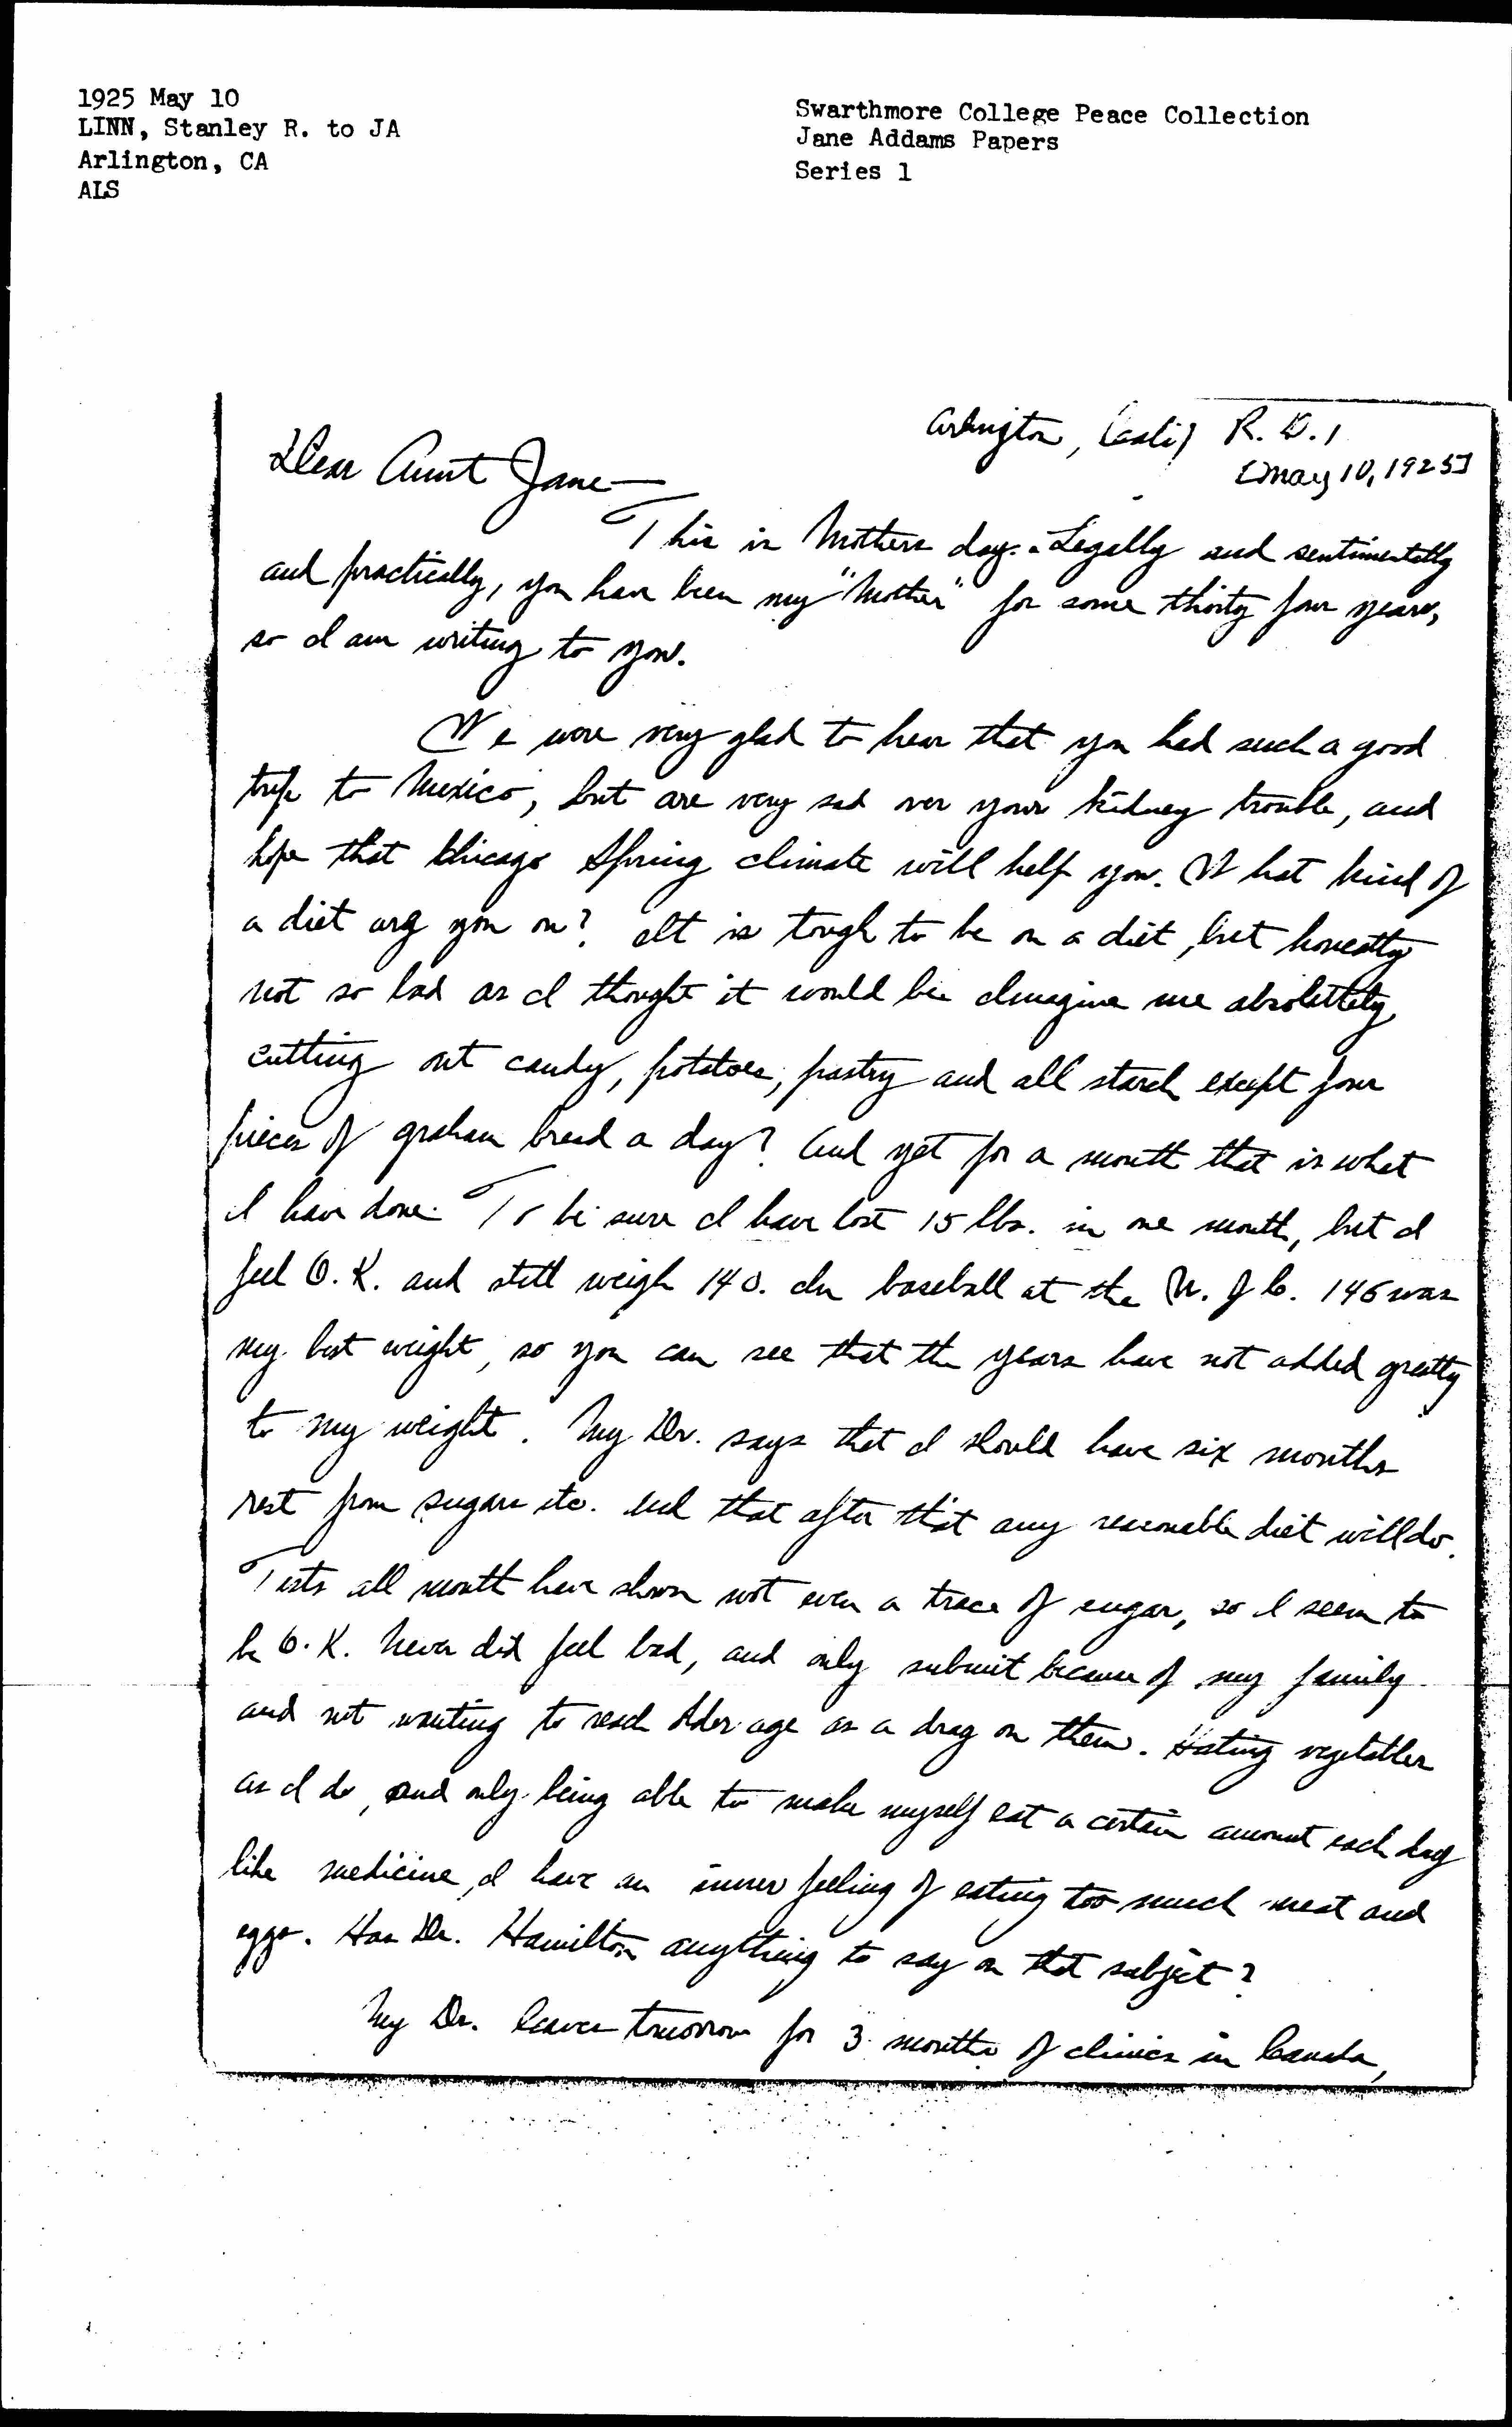 1925 May 10
LINN, Stanley R. to JA
Arlington, CA
ALS
Swarthmore College Peace Collection
Jane Addams Papers
Series 1
Arlington, Calif R. D. 1
[May 10, 1925]
Dear Aunt Jane—
This is Mothers day. Legally and sentimentally
and practically, you have been my "Mother" for some thirty four years,
so I am writing to you.
We were very glad to hear that you had such a good
trip to Mexico, but are very sad over your kidney trouble, and
hope that Chicago Spring climate will help you. What kind of
a diet are you on? It is tough to be on a diet, but honestly
not so bad as I thought it would be. Imagine me absolutely
cutting out candy, potatoes, pastry and all starch except four
pieces of graham bread a day? And yet for a month that is what
I have done. To be sure I have lost 15 lbs. in one month, but I
feel O.K. and still weigh 140. In baseball at the U. of C. 146 was
my best weight, so you can see that the years have not added greatly
to my weight. My Dr. says that I should have six months
rest from sugars etc. and that after that any reasonable diet will do.
Tests all month have shown not even a trace of sugar, so I seem to
be O.K. Never did feel bad, and only submit because of my family
and not wanting to reach older age as a drag on them. Hating vegetables
as I do, and only being able to make myself eat a certain amount each day
like medicine, I have an inner feeling of eating too much meat and
eggs. Has Dr. Hamilton anything to say on that subject?
My Dr. leaves tomorrow for 3 months of clinics in Canada,